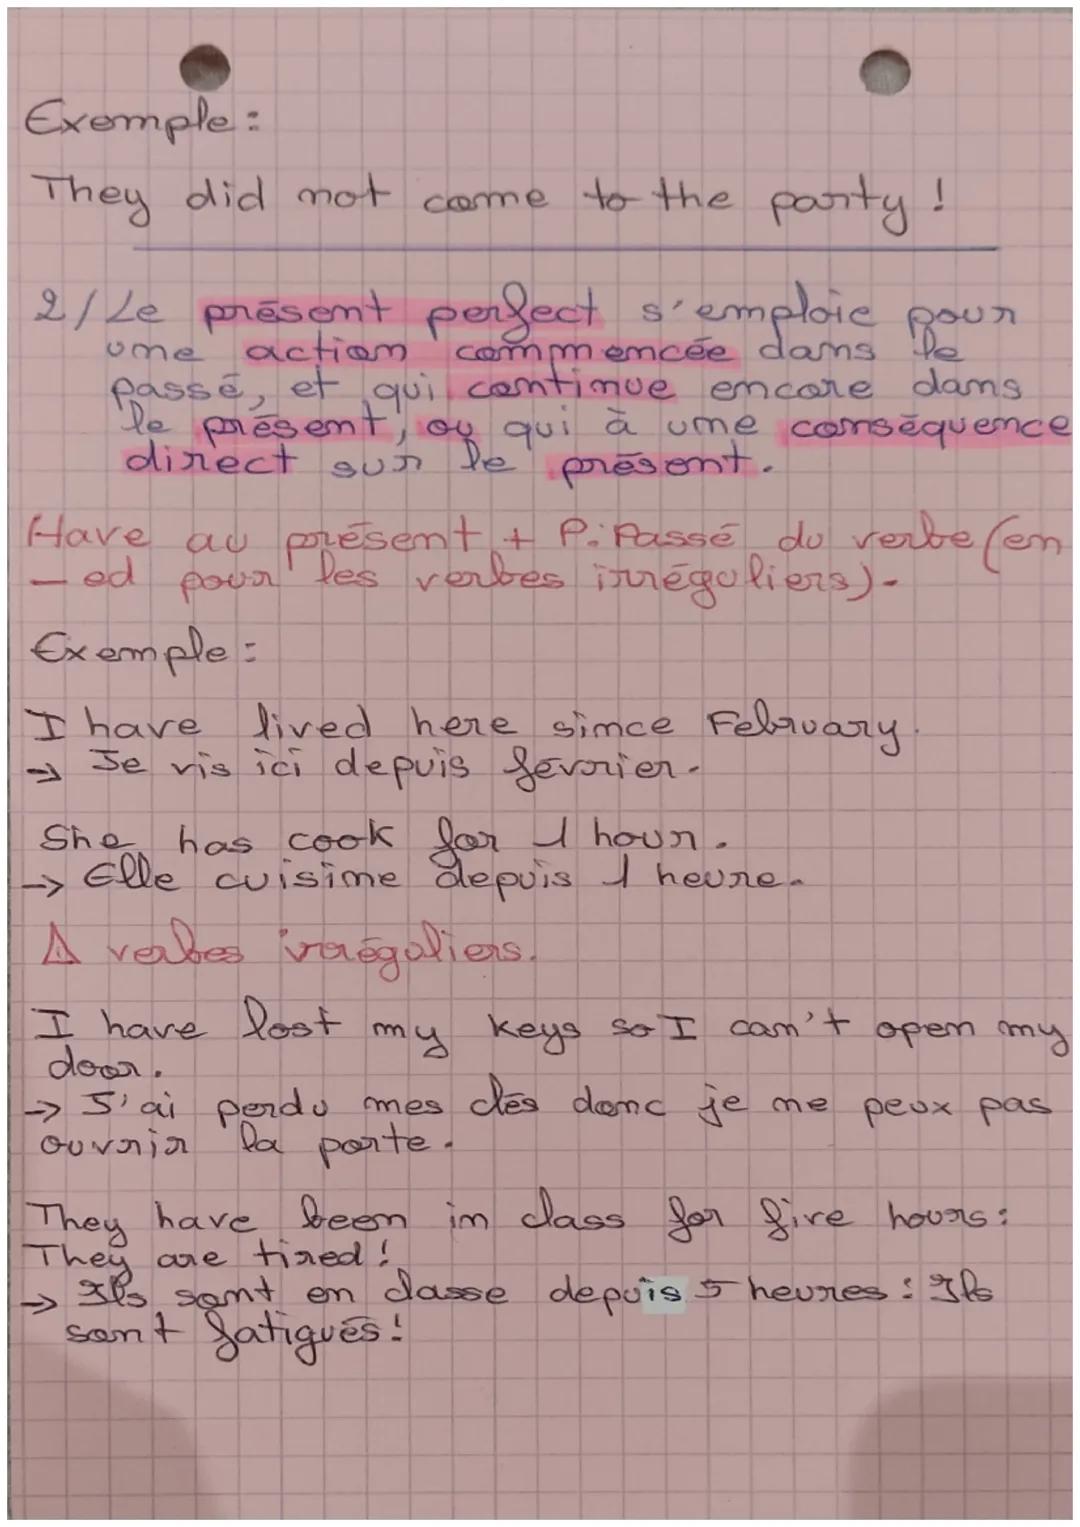 Exemple :
They did not come to the party !
2/ Le présent perfect s'emploie pour
une action commencée dans le
passé, et qui continue encore dans
le présent, ou qui à une conséquence
direct sur le présent.
Have au présent + P. Passé du verbe (en
-ed pour les verbes irréguliers).
Exemple :
I have lived here since February.
→ Je vis ici depuis février.
She has cook for 1 hour.
→ Elle cuisine depuis 1 heure.
⚠ verbes irréguliers.
I have lost my keys so I can't open my
door.
→ J'ai perdu mes clés donc je ne peux pas
ouvrir la porte.
They have been in class for five hours :
They are tired !
→ Ils sont en classe depuis 5 heures : Ils
sont fatigués !